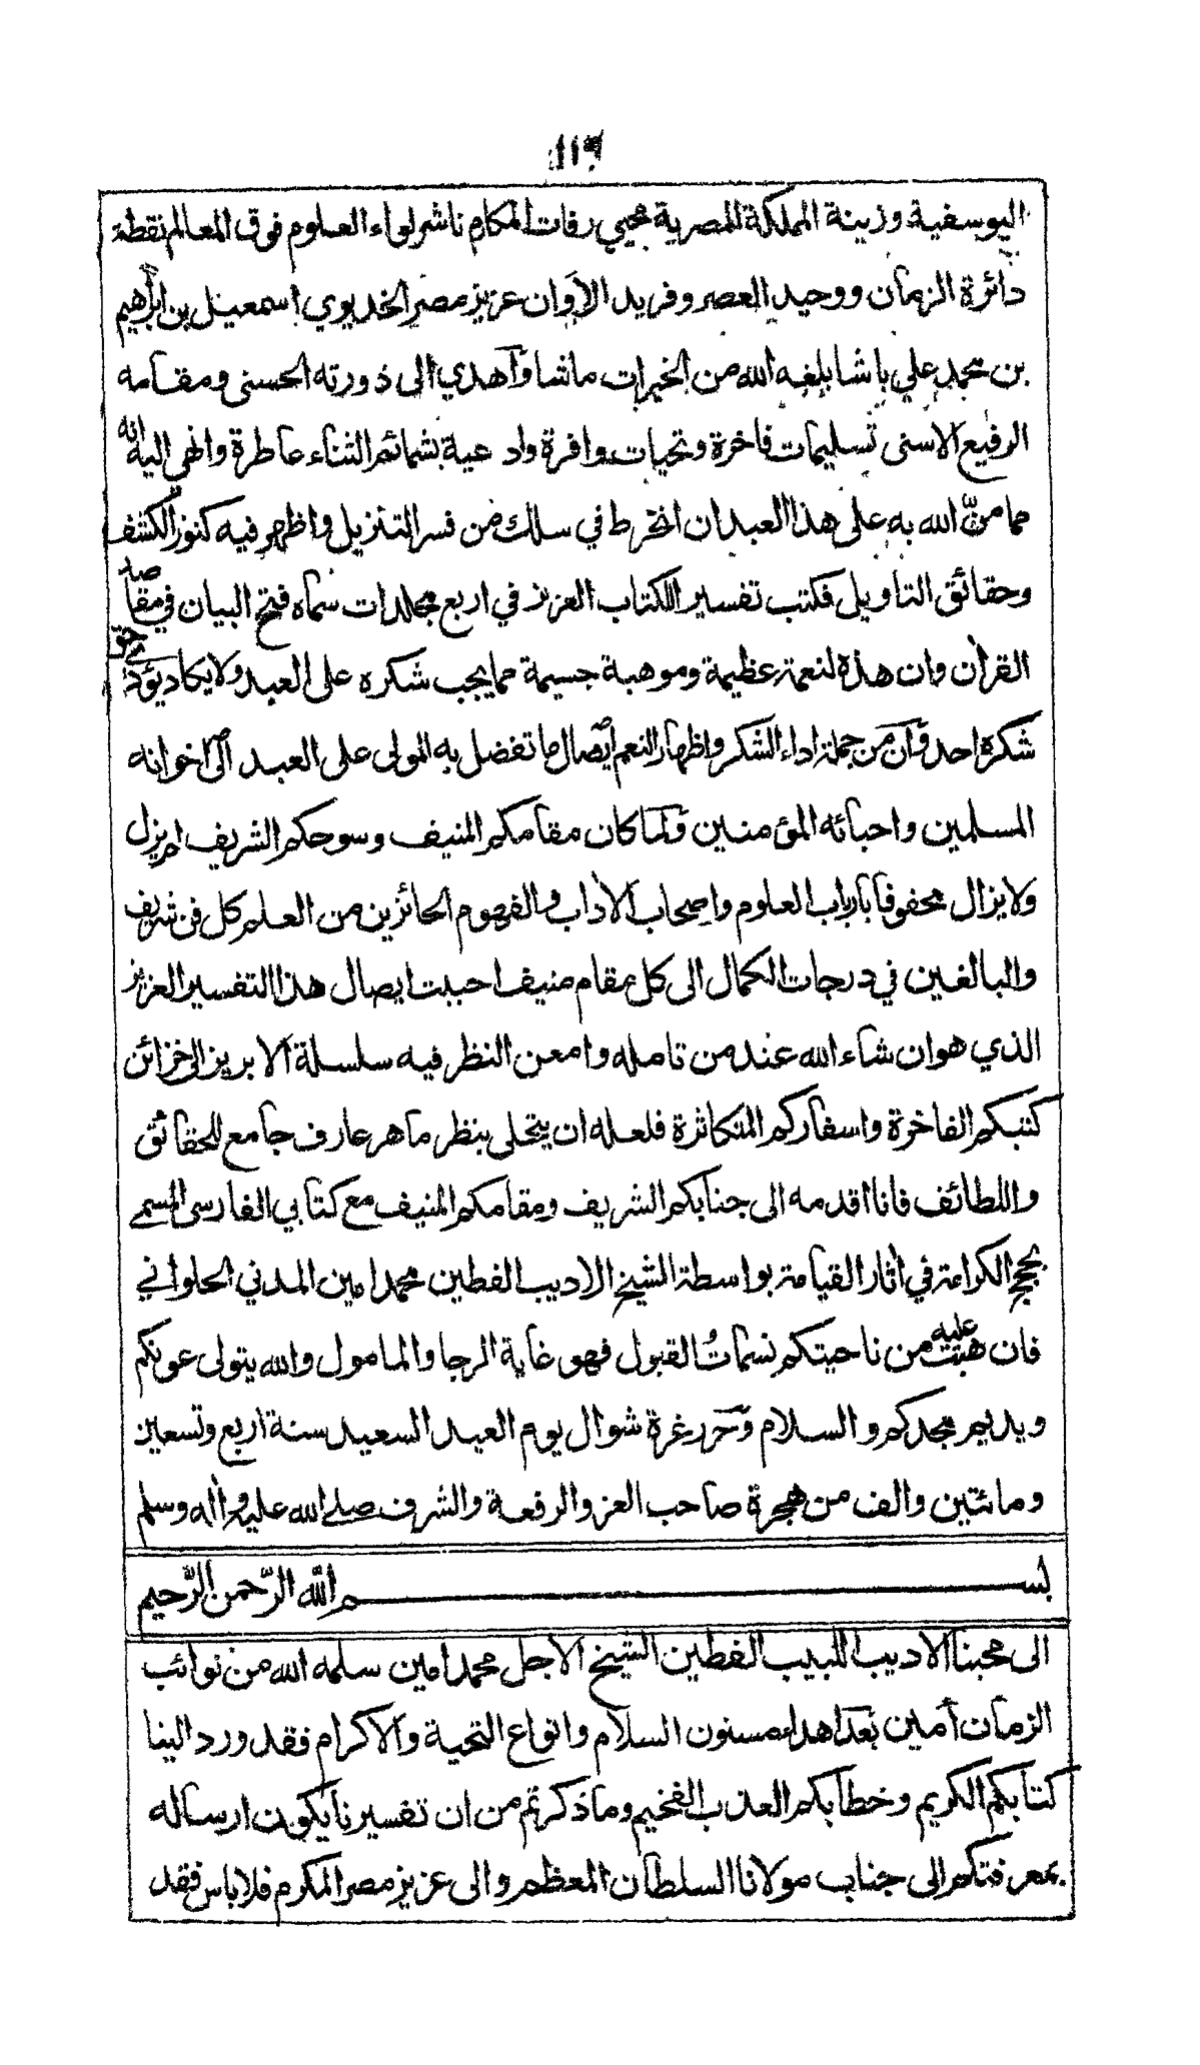 اليوسفية وزينة المملكة المصرية محيي رفات المكارم ناشر لواء العلوم فوق المعالم نقطة
دائرة الزمان ووحيد العصر وفريد الاوان عزيز مصر الخديوي اسمعيل بن ابراهيم
بن محمد علي باشا بلغه الله من الخيرات ماشا وآهدي الى ذورته الحسنى ومقامه
الرفيع الاسنى تسليمات فاخرة وتحيات وافرة وادعية بشمائم الثناء عاطرة وانهي اليه انه
مما منّ الله به على هذا العبد ان انخرط في سلك من فسر التنزيل واظهر فيه كنوز الكشف
وحقائق التاويل فكتب تفسير الكتاب العزيز في اربع مجلدات سماه فتح البيان في مقاصد
القرأن وان هذه لنعمة عظيمة وموهبة جسيمة مما يجب شكره على العبد ولا يكاد يؤدي حق
شكره احد وآن من جملة اداء الشكر واظهار النعم ايصال ما تفضل به المولى على العبد الى اخوانه
المسلمين واحبائه المؤمنين ولما كان مقامكم المنيف وسوحكم الشريف لم يزل
ولا يزال محفوفا بارباب العلوم واصحاب الأداب والفهوم الحائزين من العلم كل فن شريف
والبالغين في درجات الكمال الى كل مقام منيف احببت ايصال هذا التفسير العزيز
الذي هو ان شاء الله عند من تامله وامعن النظر فيه سلسلة الابريز الى خزائن
كتبكم الفاخرة واسفاركم المتكاثرة فلعله ان يتحلى بنظر ماهر عارف جامع للحقائق
واللطائف فانا اقدمه الى جنابكم الشريف ومقامكم المنيف مع كتابي الفارسى المسمے
بحجج الكرامة في أثار القيامة بواسطة الشيخ الاديب الفطين محمد امين المدني الحلواني
فان هبّت عليه من ناحيتكم نسمات القبول فهو غاية الرجا والمامول والله يتولى عونكم
ويديم مجدكم والسلام وحرر غرة شوال يوم العيد السعيد سنة اربع وتسعين
ومائتين والف من هجرة صاحب العز والرفعة والشرف صلے الله عليه وأله وسلم
بسم الله الرّحمن الرّحيم
الى محبنا الاديب اللبيب الفطين الشيخ الاجل محمد امين سلمه الله من نوائب
الزمان أمين بعد اهداء مسنون السلام وانواع التحية والاكرام فقد ورد الينا
كتابكم الكريم وخطابكم العذب الفخيم وما ذكرتم من ان تفسيرنا يكون ارساله
بمعرفتكم الى جناب مولانا السلطان المعظم والى عزيز مصر المكرم فلا باس فقد